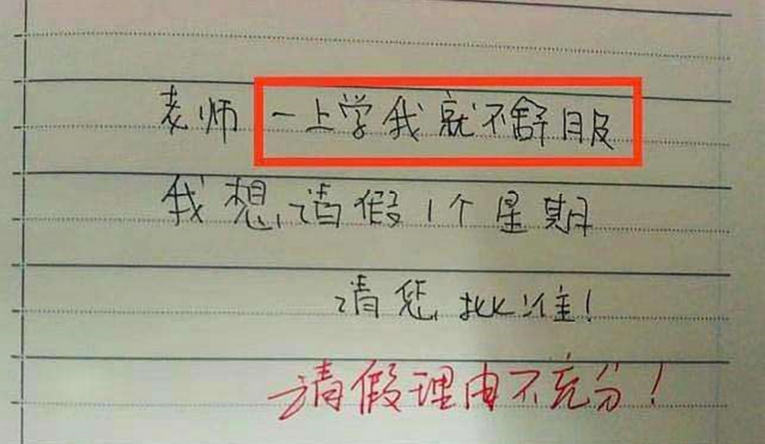 老师 一上学我就不舒服
我想请假1个星期
请您批准!
请假理由不充分!